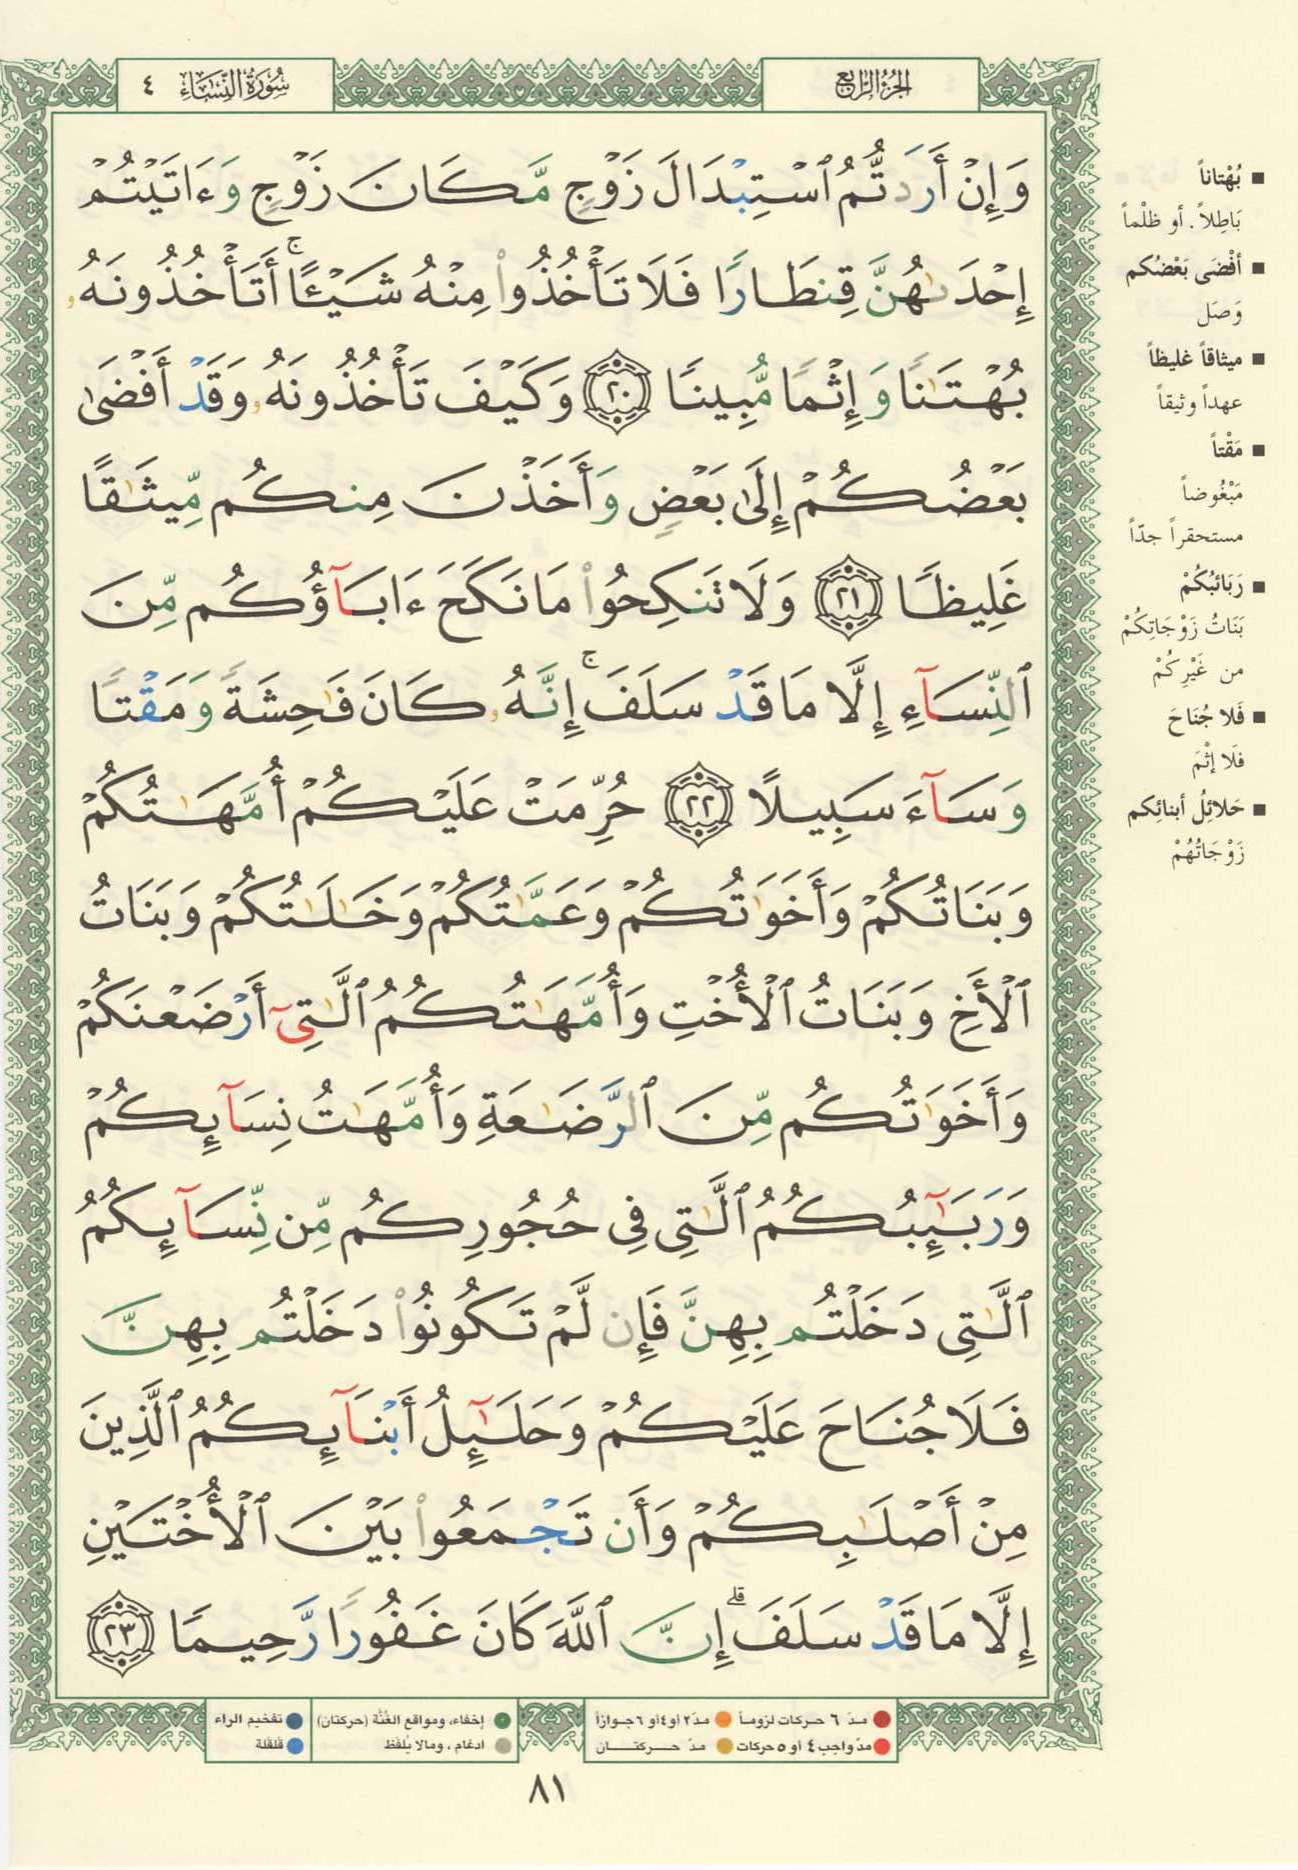 الجزء الرابع
سورة النساء ٤
وَإِنْ أَرَدتُّمُ ٱسْتِبْدَالَ زَوْجٍ مَّكَانَ زَوْجٍ وَءَاتَيْتُمْ
إِحْدَىٰهُنَّ قِنطَارًا فَلَا تَأْخُذُوا۟ مِنْهُ شَيْـًٔا ۚ أَتَأْخُذُونَهُۥ
بُهْتَـٰنًا وَإِثْمًا مُّبِينًا ٢٠ وَكَيْفَ تَأْخُذُونَهُۥ وَقَدْ أَفْضَىٰ
بَعْضُكُمْ إِلَىٰ بَعْضٍ وَأَخَذْنَ مِنكُم مِّيثَـٰقًا
غَلِيظًا ٢١ وَلَا تَنكِحُوا۟ مَا نَكَحَ ءَابَآؤُكُم مِّنَ
ٱلنِّسَآءِ إِلَّا مَا قَدْ سَلَفَ ۚ إِنَّهُۥ كَانَ فَـٰحِشَةً وَمَقْتًا
وَسَآءَ سَبِيلًا ٢٢ حُرِّمَتْ عَلَيْكُمْ أُمَّهَـٰتُكُمْ
وَبَنَاتُكُمْ وَأَخَوَٰتُكُمْ وَعَمَّـٰتُكُمْ وَخَـٰلَـٰتُكُمْ وَبَنَاتُ
ٱلْأَخِ وَبَنَاتُ ٱلْأُخْتِ وَأُمَّهَـٰتُكُمُ ٱلَّـٰتِىٓ أَرْضَعْنَكُمْ
وَأَخَوَٰتُكُم مِّنَ ٱلرَّضَـٰعَةِ وَأُمَّهَـٰتُ نِسَآئِكُمْ
وَرَبَـٰٓئِبُكُمُ ٱلَّـٰتِى فِى حُجُورِكُم مِّن نِّسَآئِكُمُ
ٱلَّـٰتِى دَخَلْتُم بِهِنَّ فَإِن لَّمْ تَكُونُوا۟ دَخَلْتُم بِهِنَّ
فَلَا جُنَاحَ عَلَيْكُمْ وَحَلَـٰٓئِلُ أَبْنَآئِكُمُ ٱلَّذِينَ
مِنْ أَصْلَـٰبِكُمْ وَأَن تَجْمَعُوا۟ بَيْنَ ٱلْأُخْتَيْنِ
إِلَّا مَا قَدْ سَلَفَ ۗ إِنَّ ٱللَّهَ كَانَ غَفُورًا رَّحِيمًا ٢٣
■ بُهْتاناً
بَاطِلاً. أو ظلْماً
■ أفْضَى بَعْضُكم
وَصَل
■ ميثاقاً غليظاً
عهداً وثيقاً
■ مَقْتاً
مَبْغُوضاً
مستحقراً جدّاً
■ رَبَائبُكُمْ
بَنَاتُ زَوْجَاتِكُمْ
من غَيْرِكُمْ
■ فَلا جُنَاحَ
فلَا إثْمَ
■ حَلائِلُ أبنائِكم
زَوْجَاتُهُمْ
مدّ ٦ حركات لزوماً ● مدّ ٢ أو ٤ أو ٦ جوازاً
مدّ واجب ٤ أو ٥ حركات ● مدّ حركتان
إخفاء، ومواقع الغُنَّة (حركتان) ● تفخيم الراء
ادغام، ومالا يُلفَظ ● قلقلة
٨١